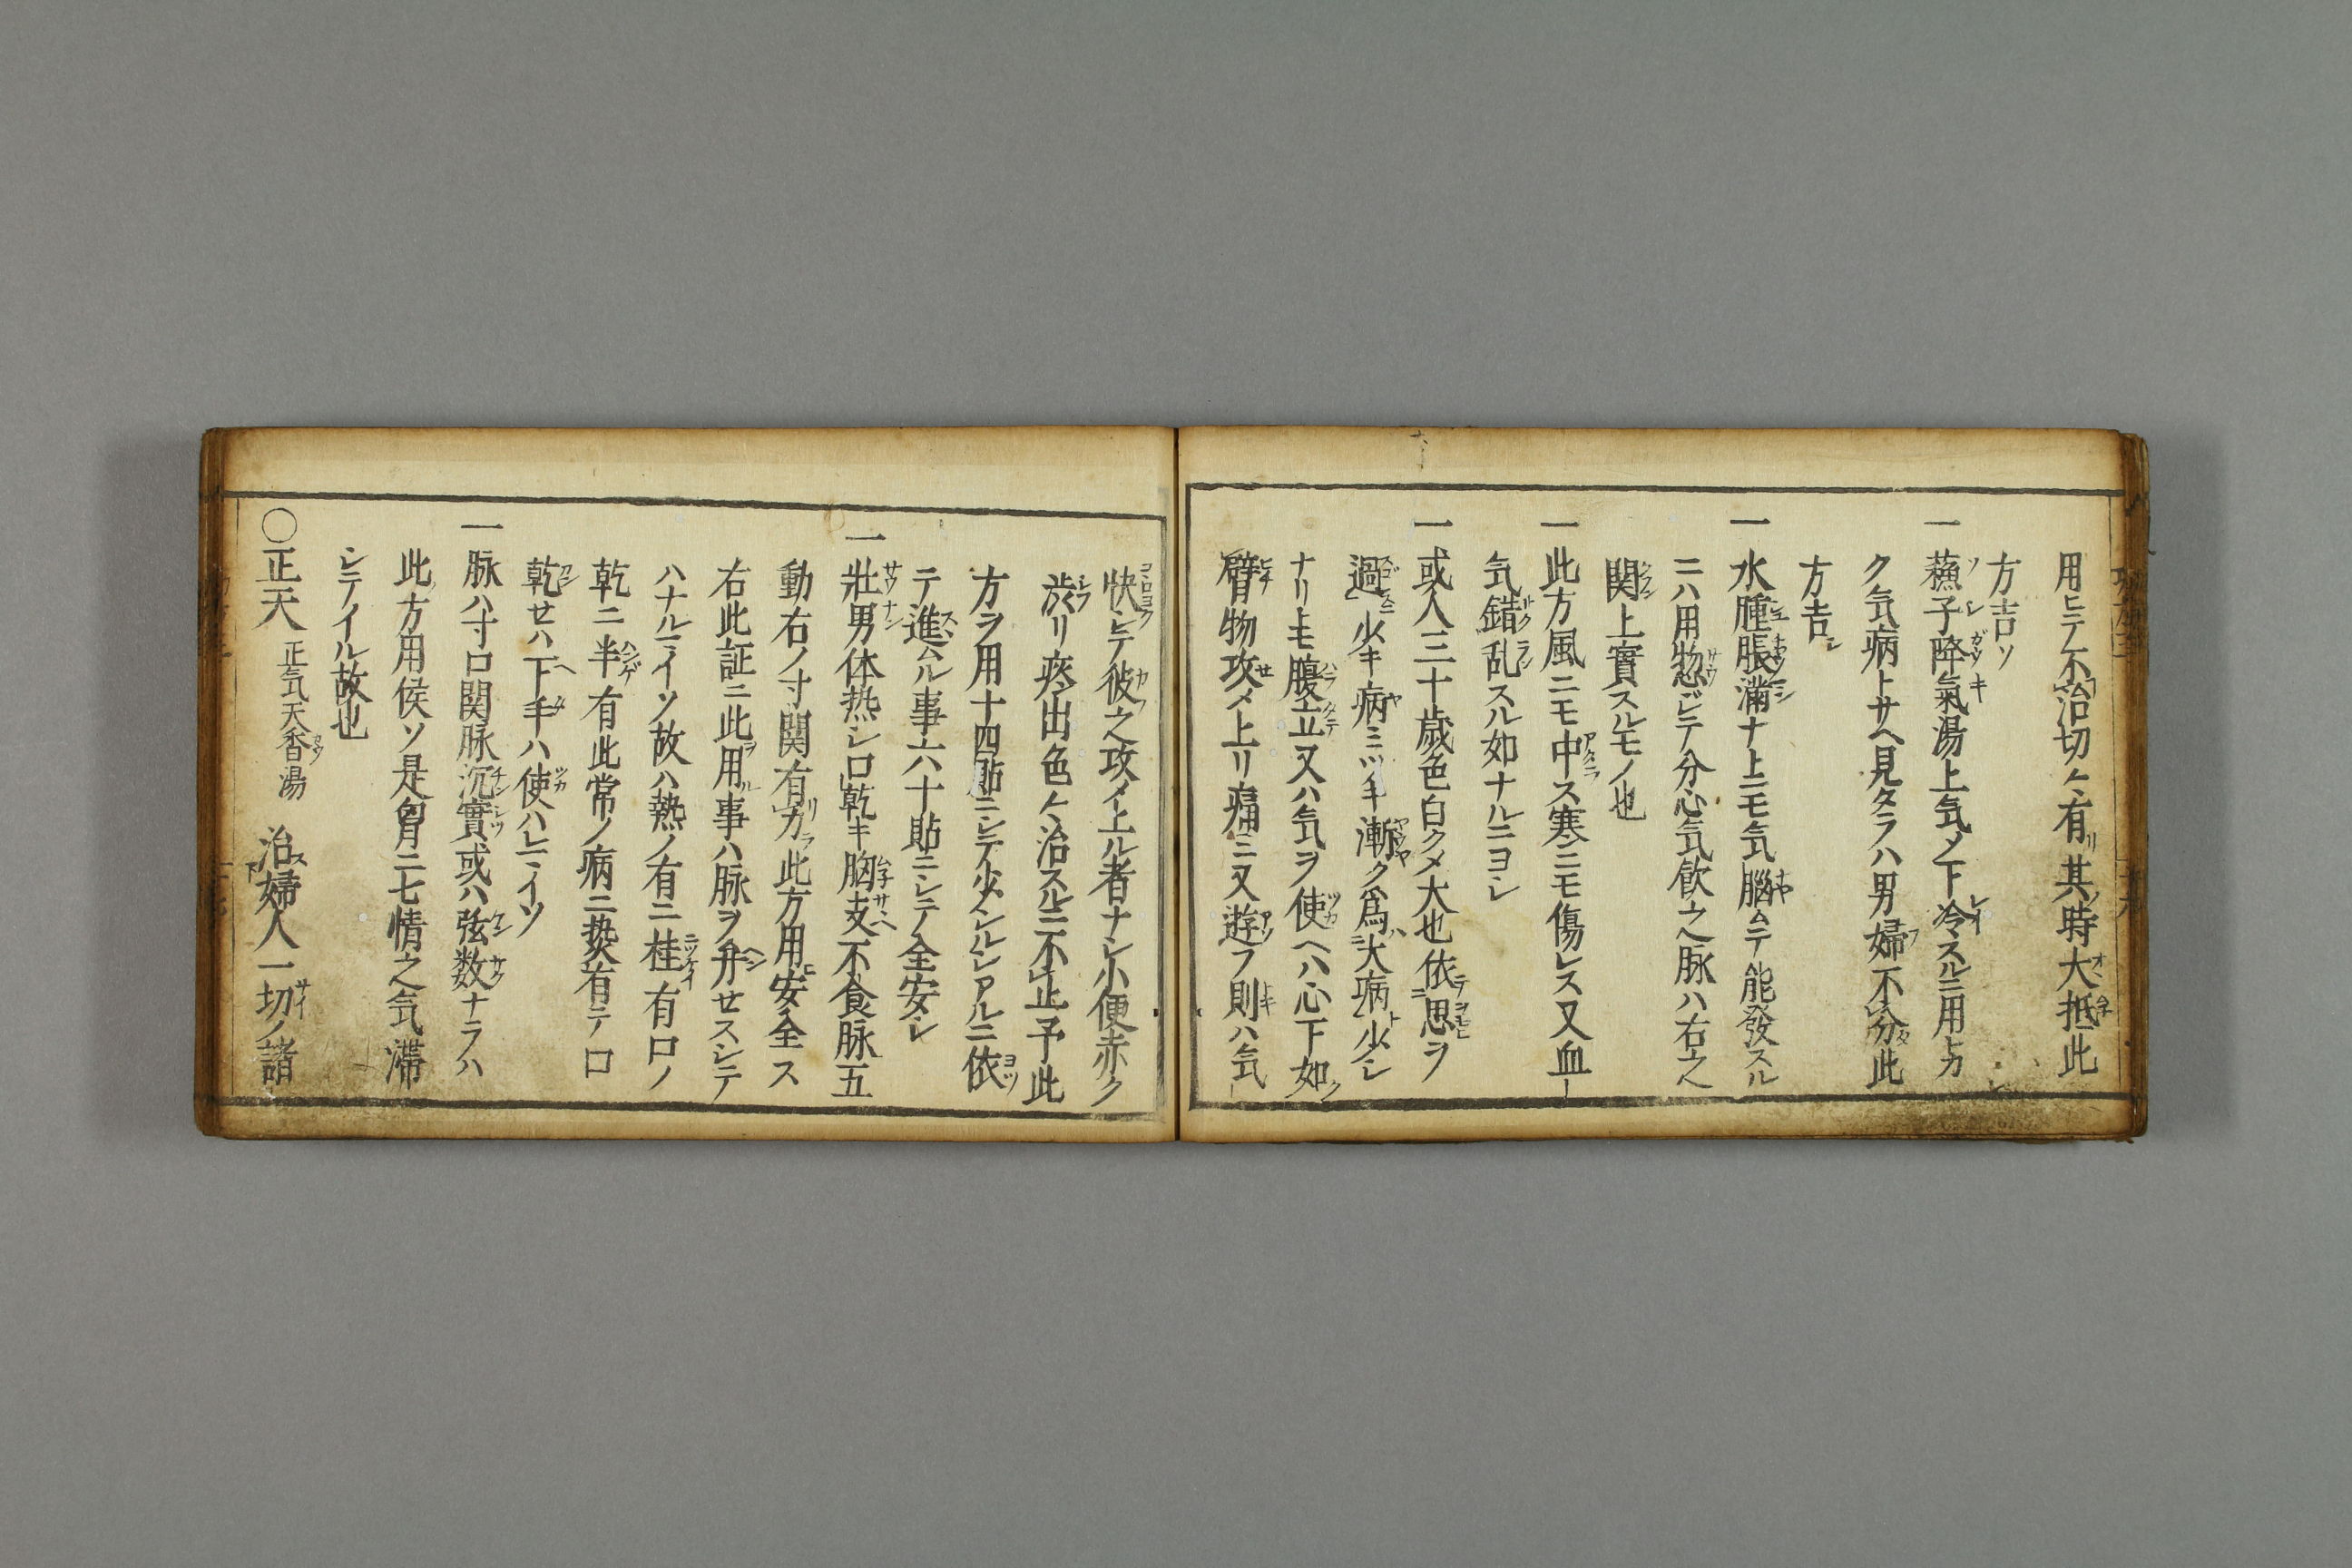 用ヒテ不治切々有其時大抵此
方吉ソ
一蘓子降氣湯上気メ下冷スルニ用ヒカ
ク気病トサヘ見タラハ男婦不分此
方吉シ
一水腫脹滿ナトニモ気腦ムテ能發スル
ニハ用惣ジテ分心気飲之脉ハ右之
関上實スルモノ也
一此方風ニモ中ス寒ニモ傷レス又血ー
気錯乱スル如ナルニヨシ
一或人三十歳色白クメ大也依思ヲ
過少キ病ミツキ漸ク爲大病少シ
ナリトモ腹立又ハ気ヲ使ヘハ心下如ク
臂物攻メ上リ痛ニ又遊フ則ハ気ー
快シテ彼之攻メ上ル者ナシ小便赤ク
渋リ痰出色々治スルニ不止予此
方ヲ用十四貼ニシテ少シルシアルニ依
テ進ムル事六十貼ニシテ全安シ
一壯男体热シ口乾キ胸支不食脉五
動右ノ寸関有力此方用安全ス
右此証ニ此用事ハ脉ヲ弁せスシテ
ハナルニイソ故ハ熱ノ有ニ桂有口ノ
乾ニ半有此常ノ病ニ热有テ口
乾せハ下手ハ使ハレニイソ
一脉ハ寸口関脉沉實或ハ弦数ナラハ
此方用侯ソ是胃ニ七情之気滞
シテイル故也
〇正天 正気天香湯 治婦人一切ノ諸